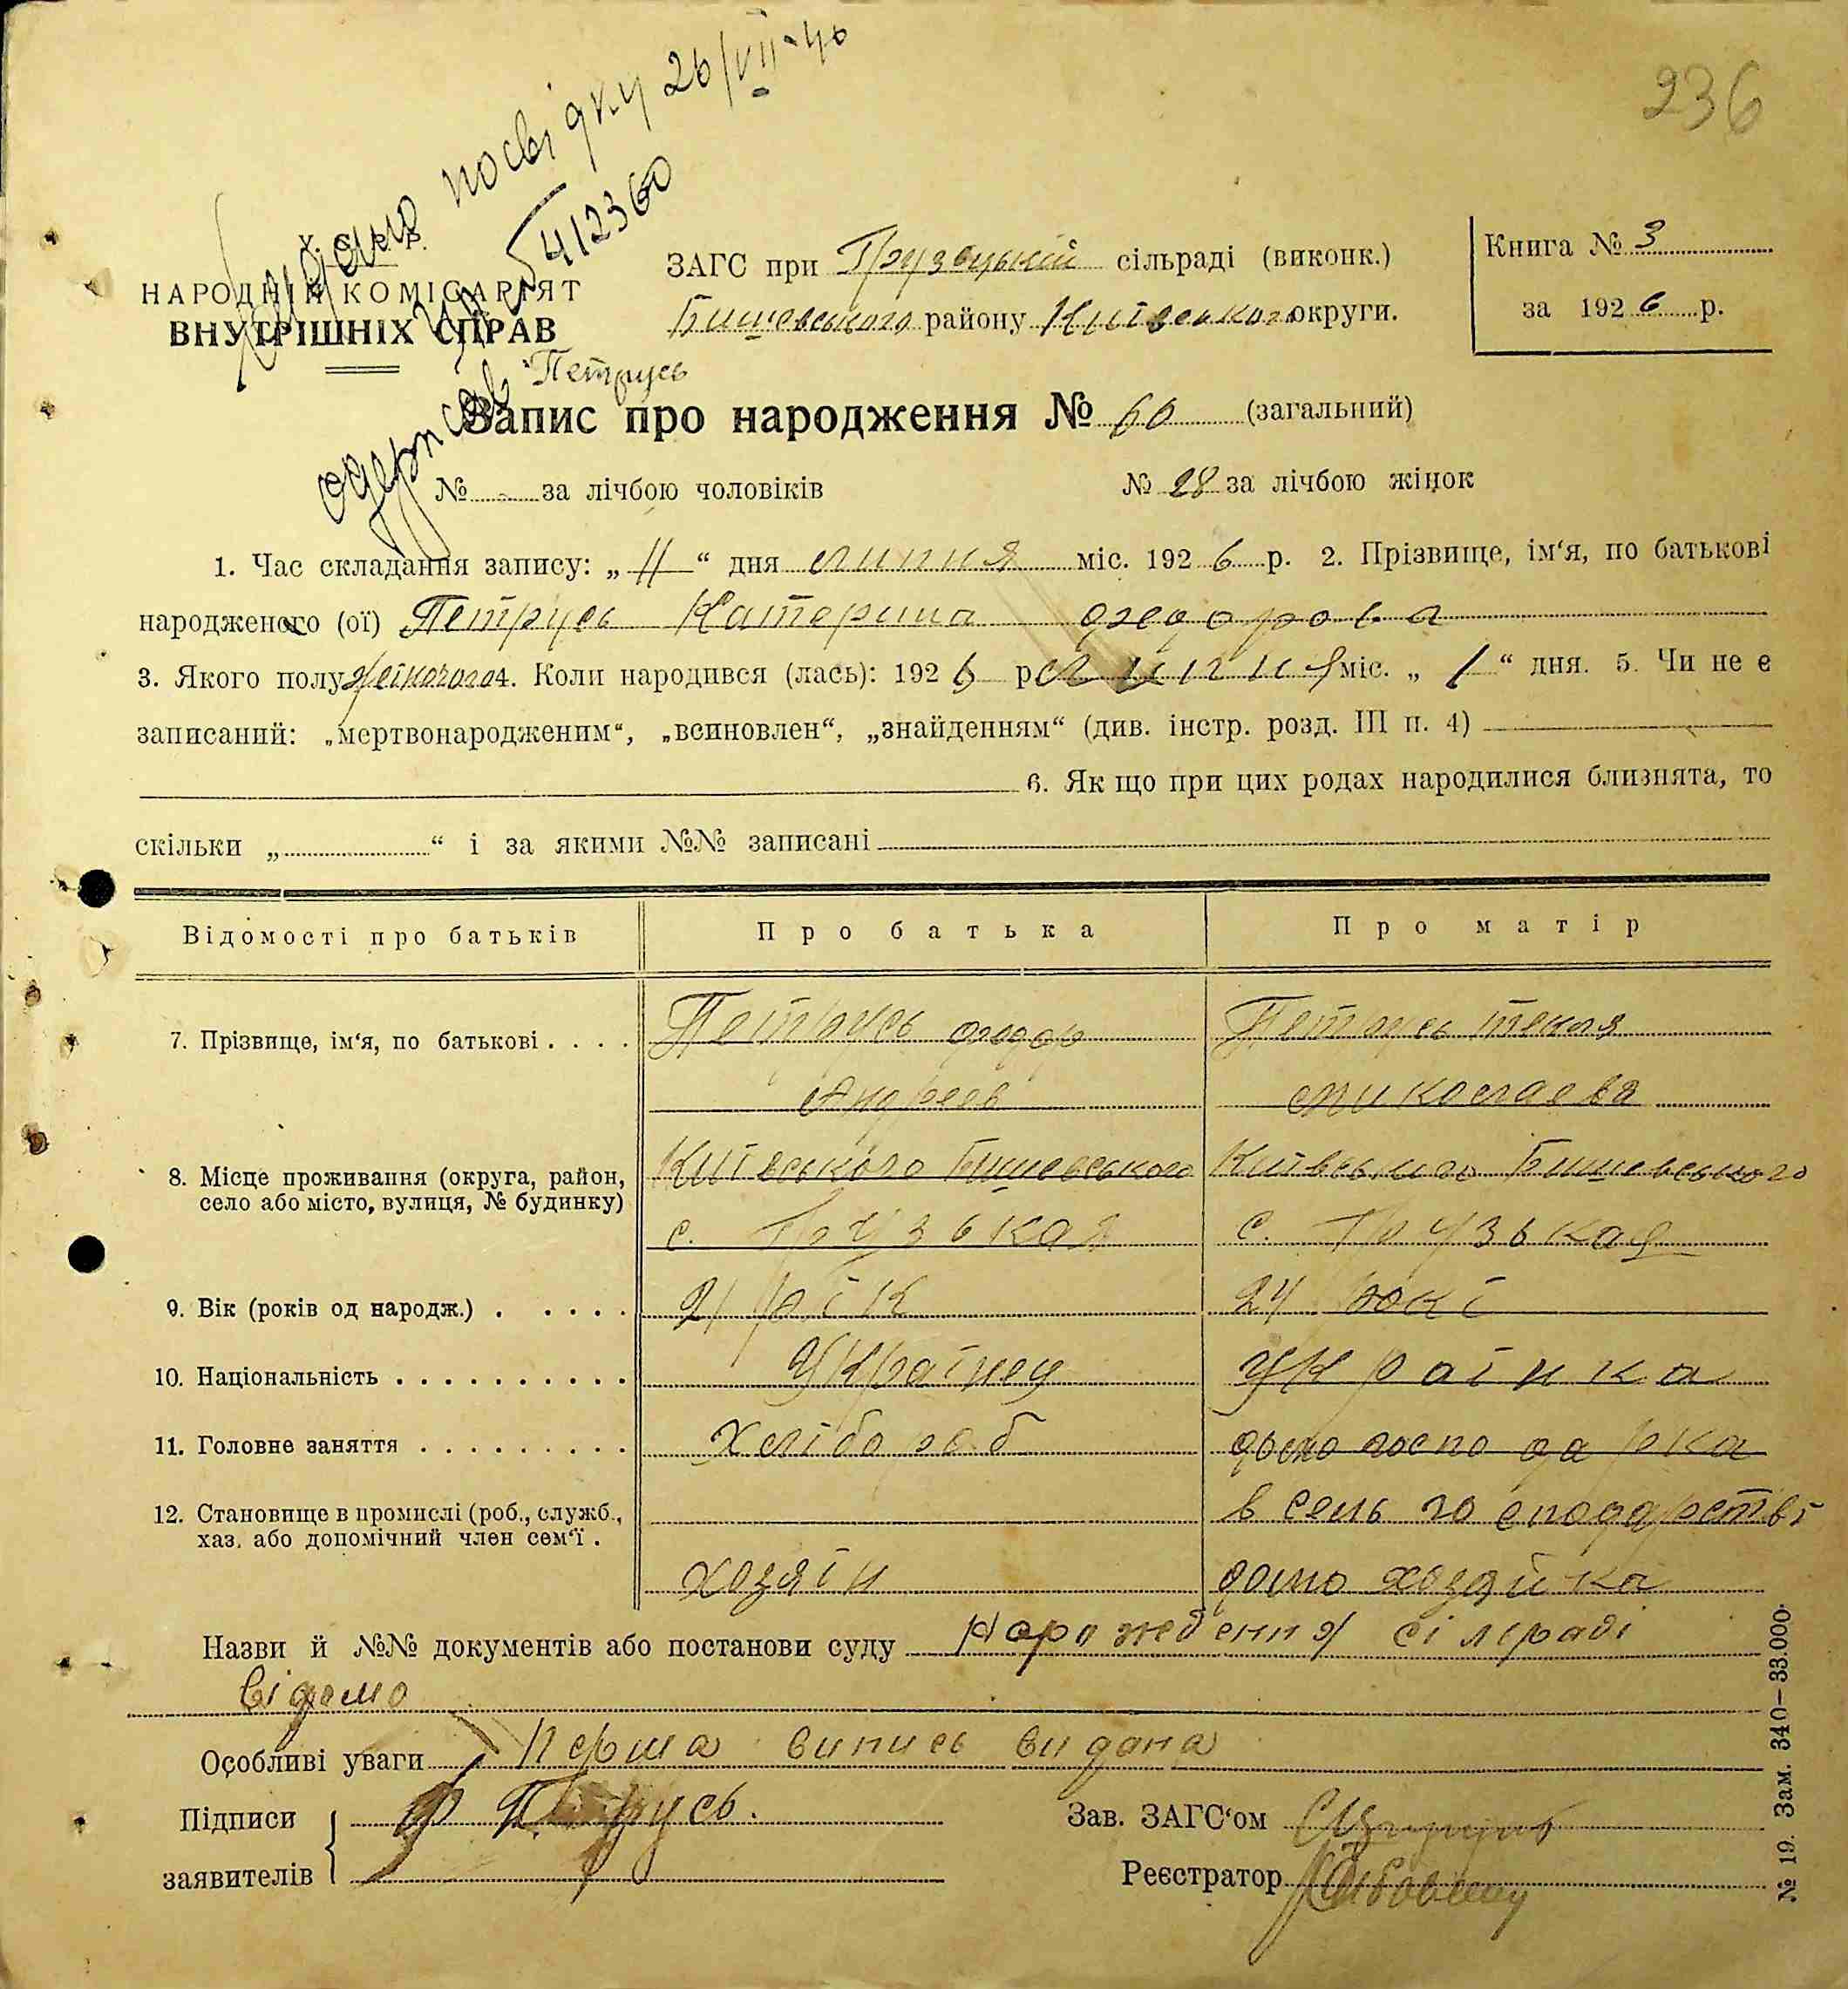 236
посвідку 26/VII-40
412360
У. С. Р. Р.
НАРОДНІЙ КОМІСАРІЯТ
ВНУТРІШНІХ СПРАВ
одержав
Петрусь
ЗАГС при Грузьцькій сільраді (виконк.)
Бишевського району Київського округи.
Книга № 3
за 1926 р.
Запис про народження № 60 (загальний)
№ - за лічбою чоловіків № 28 за лічбою жінок
1. Час складання запису: „11“ дня липня міс. 1926 р. 2. Прізвище, ім‘я, по батькові
народженого (ої) Петрусь Катерина Федорова
3. Якого полу жіночого 4. Коли народився (лась): 1926 р. липня міс. „1“ дня. 5. Чи не є
записаний: „мертвонародженим“, „всиновлен“, „знайденням“ (див. інстр. розд. III п. 4)
6. Як що при цих родах народилися близнята, то
скільки „ “ і за якими №№ записані
Відомості про батьків Про батька Про матір
7. Прізвище, ім‘я, по батькові . . . . Петрусь Федор Петрусь Текля
Андреев Миколаева
8. Місце проживання (округа, район, Київського Бишевського Київського Бишевського
село або місто, вулиця, № будинку) с. Грузькая с. Грузькая
9. Вік (років од народж.) . . . . . 21 рік 24 рокі
10. Національність . . . . . . . . . . Українец Українка
11. Головне заняття . . . . . . . . . Хлібороб домо господарка
12. Становище в промислі (роб., служб., в сель господарстві
хаз. або допомічний член сем‘ї . хозяін домо хозяйка
Назви й №№ документів або постанови суду Народження сілраді
відомо
Особливі уваги Перша випись видана
Підписи Ф Петрусь. Зав. ЗАГС‘ом
заявителів Реєстратор
№ 19. Зам. 340—33.000.